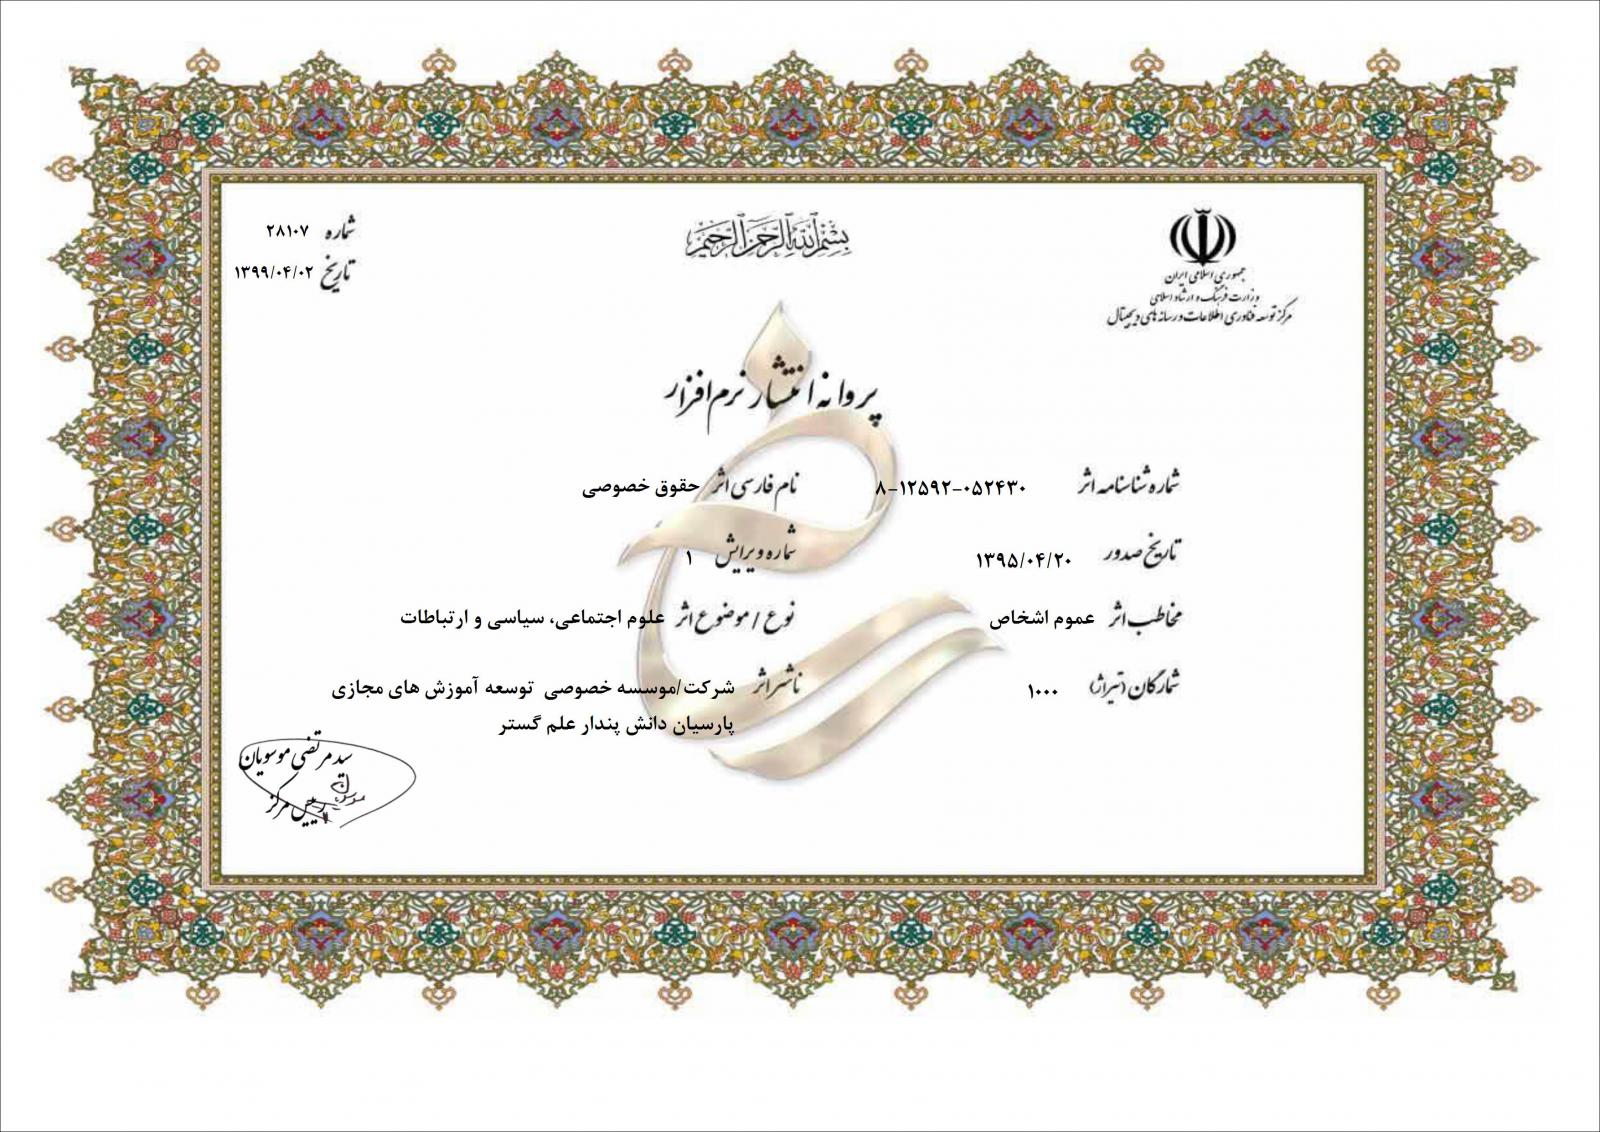 بسم الله الرحمن الرحیم
جمهوری اسلامی ایران
وزارت فرهنگ و ارشاد اسلامی
مرکز توسعه فناوری اطلاعات و رسانه های دیجیتال
شماره ۲۸۱۰۷
تاریخ ۱۳۹۹/۰۴/۰۲
پروانه انتشار نرم افزار
شماره شناسنامه اثر ۸-۱۲۵۹۲-۰۵۲۴۳۰ نام فارسی اثر حقوق خصوصی
تاریخ صدور ۱۳۹۵/۰۴/۲۰ شماره ویرایش ۱
مخاطب اثر عموم اشخاص نوع / موضوع اثر علوم اجتماعی، سیاسی و ارتباطات
شمارگان (تیراژ) ۱۰۰۰ ناشر اثر شرکت/موسسه خصوصی توسعه آموزش های مجازی
پارسیان دانش پندار علم گستر
سید مرتضی موسویان
رییس مرکز